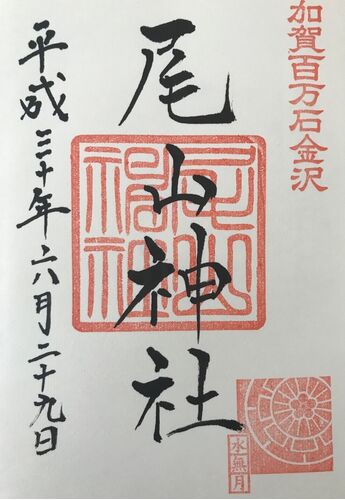 加賀百万石金沢
尾山神社
尾山神社
平成三十年六月二十九日
水無月